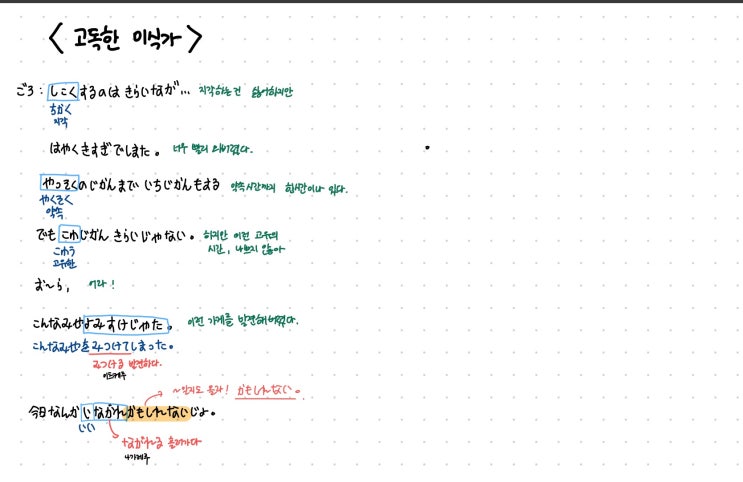 <고독한 미식가>
ごろ: しこくするのは きらいなが... 지각하는건 싫어하지만
ちかく
지각
はやくきすぎでしまた。 너무 빨리 와버렸다.
やっそくのじかんまで いちじかんもある 약속시간까지 한시간이나 있다.
やくそく
약속
でも こわじかん きらいじゃない。 하지만 이런 고유의
시간, 나쁘지 않아
こゆう
고유한
お〜ら, 어라!
こんなみせよみすけじゃた。 이런 가게를 발견해버렸다.
こんなみせをみつけてしまった。
みつける 발견하다.
미츠케루
~일지도 몰라! かもしれない。
今日なんか いながれかもしれないじょ。
いい
ながれる 흘러가다
나가레루